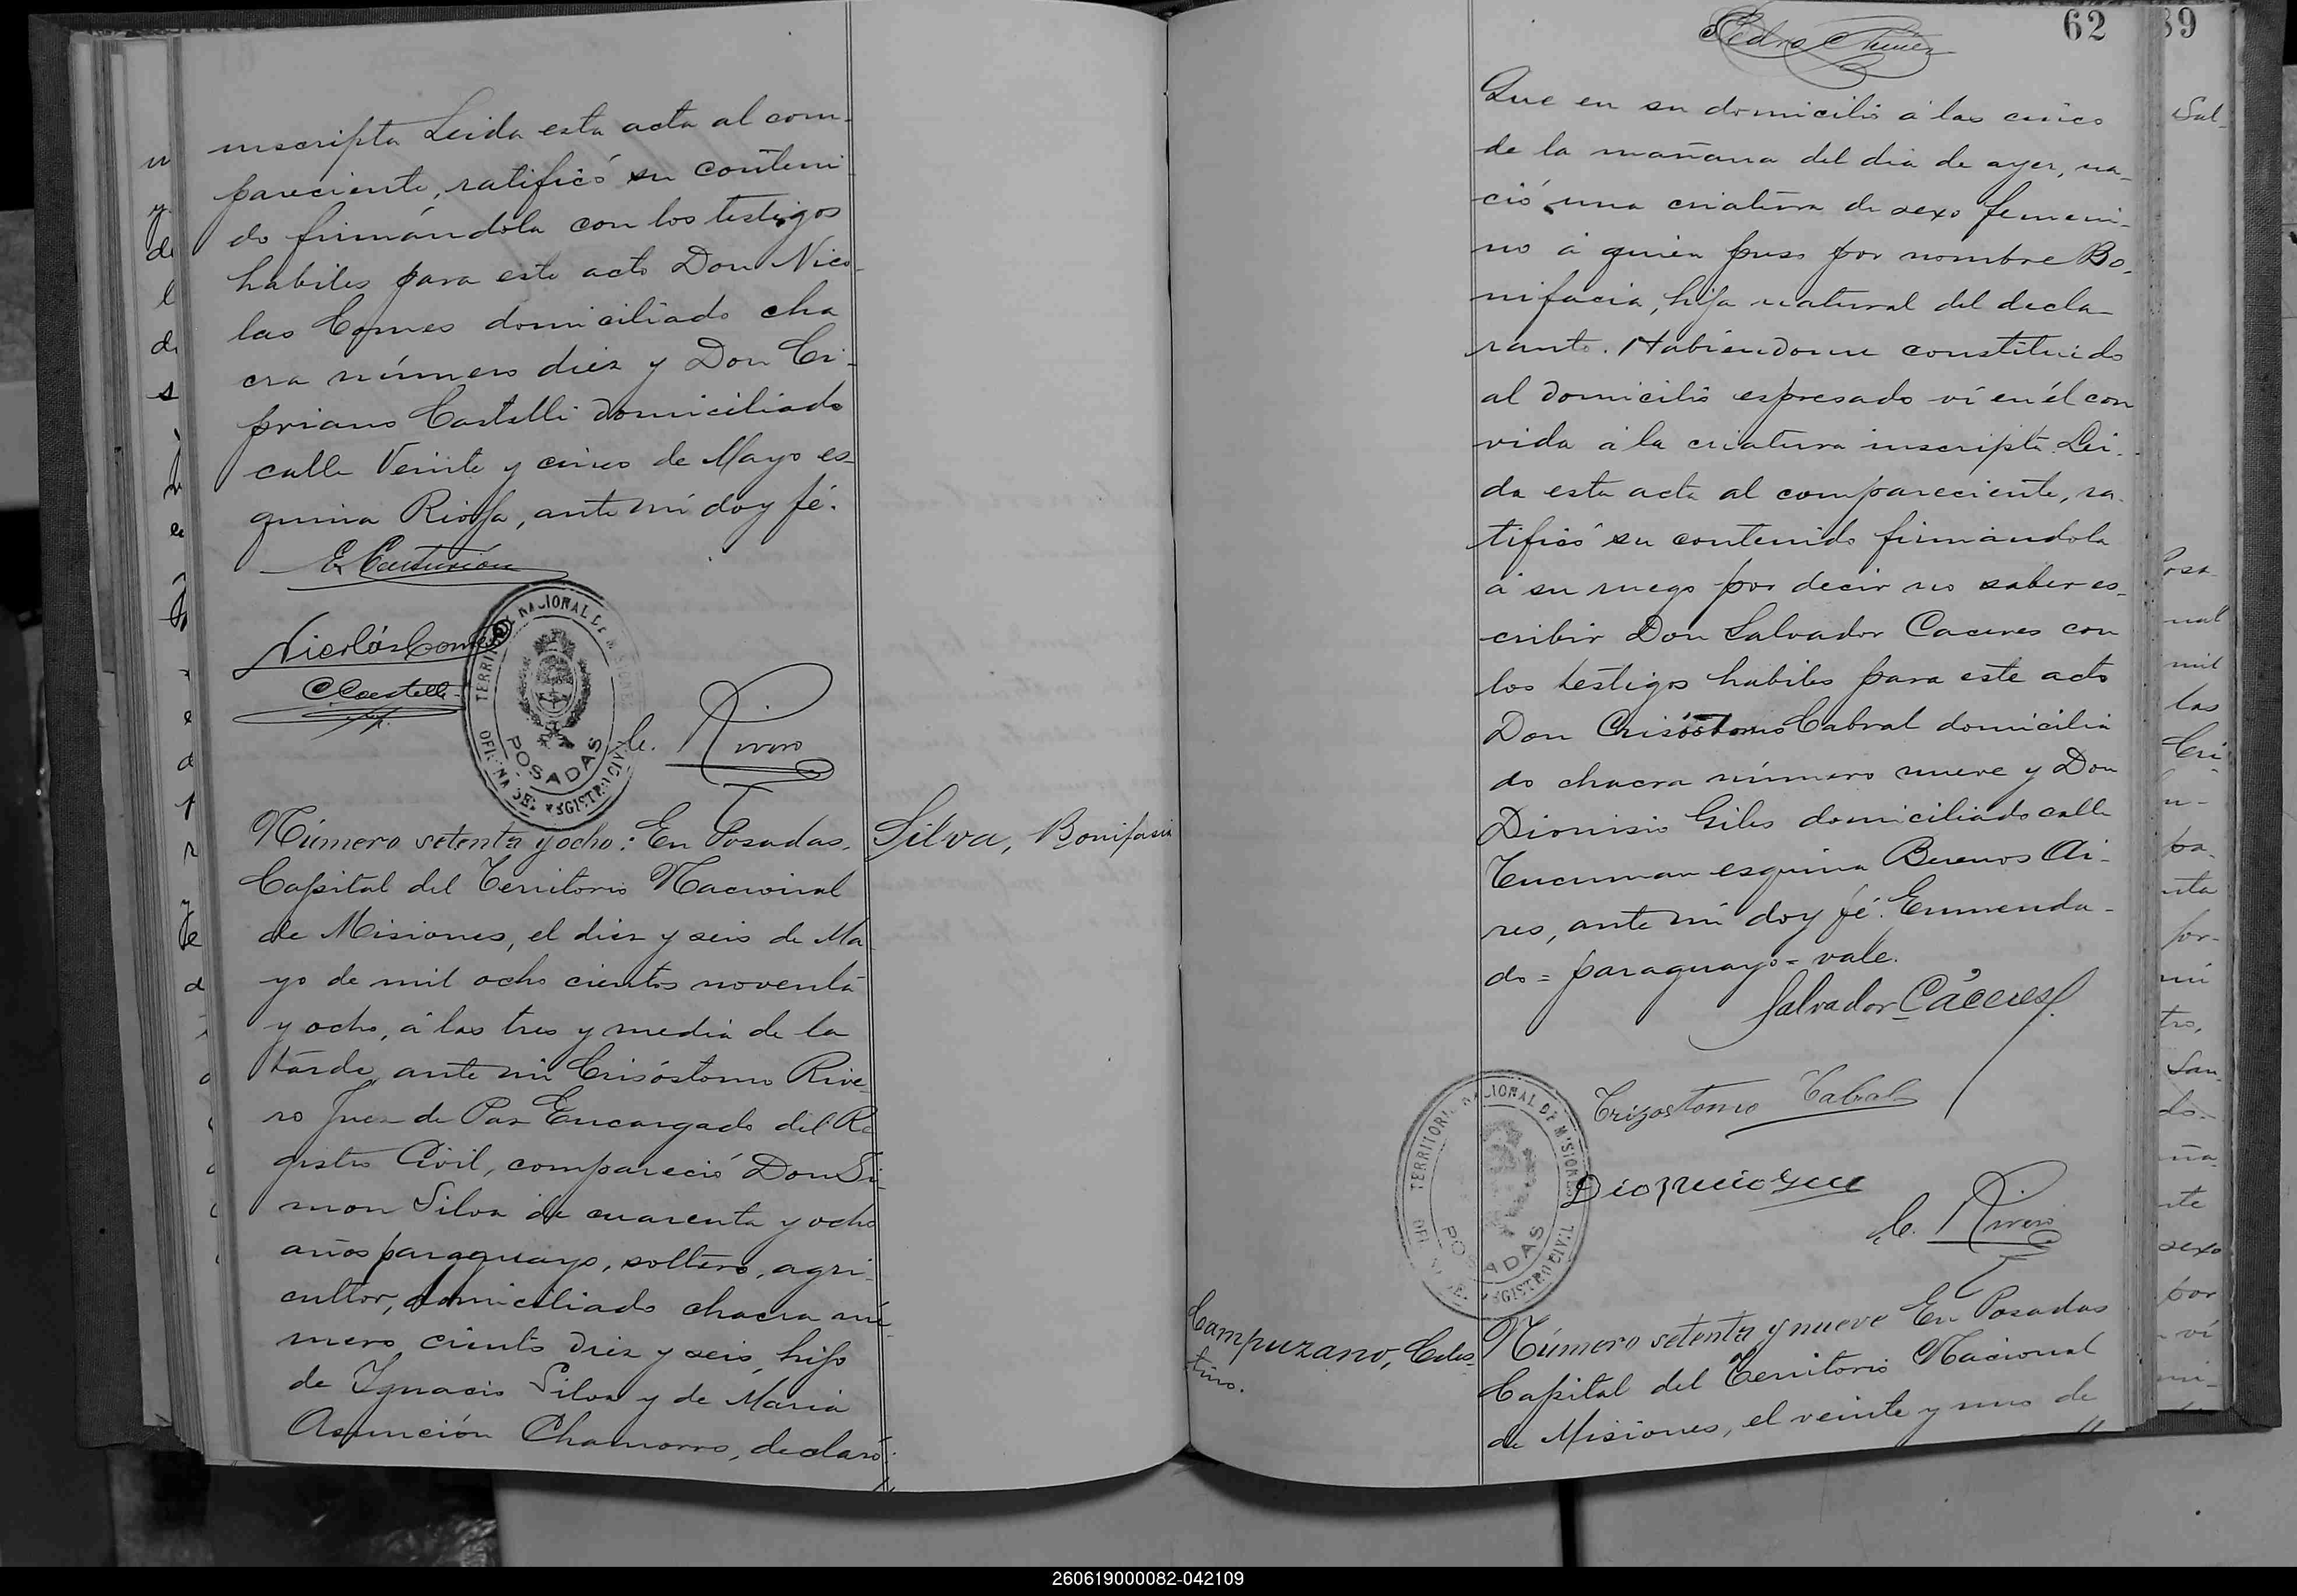 inscripta Leida esta acta al com-
pareciente, ratificó su conteni
do firmándola con los testigos
habiles para este acto Don Nico-
las Comes domiciliado cha
cra número diez y Don Ci-
priano Castelli domiciliado
calle Veinte y cinco de Mayo es-
quina Rioja, ante mí doy fé.
E. Centurión
Nicolás Comes
C Castelli
TERRITORIO NACIONAL DE MISIONES
POSADAS
OFICINA DEL REGISTRO CIVIL
C. Rivero
Silva, Bonifacia
Número setenta y ocho: En Posadas,
Capital del Territorio Nacional
de Misiones, el diez y seis de Ma
yo de mil ocho cientos noventa
y ocho, á las tres y media de la
tarde, ante mi Crisóstomo Rive
ro Juez de Paz Encargado del Re
gistro Civil, compareció Don Si-
mon Silva de cuarenta y ocho
años paraguayo, soltero, agri-
cultor, domiciliado chacra nú-
mero ciento diez y seis, hijo
de Ignacio Silva y de Maria
Asunción Chamorro, declaró:
Pedro Nuñez
62
Que en su domicilio á las cinco
de la mañana del dia de ayer, na-
ció una criatura de sexo femeni-
no á quien puso por nombre Bo-
nifacia, hija natural del decla-
rante. Habiendome constituido
al domicilio espresado ví en él con
vida á la criatura inscripta. Lei-
da esta acta al compareciente, ra-
tificó su contenido firmándola
á su ruego por decir no saber es-
cribir Don Salvador Caceres con
los testigos habiles para este acto
Don Crisóstomo Cabral domicilia
do chacra número nueve y Don
Dionisio Giles domiciliado calle
Tucuman esquina Buenos Ai-
res, ante mí doy fé. Enmenda-
do = paraguayo = vale.
Salvador Cáceres
Crizostomo Cabral
TERRITORIO NACIONAL DE MISIONES
POSADAS
OFICINA DEL REGISTRO CIVIL
C. Rivero
Campuzano, Celes-
tino.
Número setenta y nueve En Posadas
Capital del Territorio Nacional
de Misiones, el veinte y uno de
89
Sal-
mil
las
Cri
pa-
por-
San-
do-
sexo
por
ví
260619000082-042109